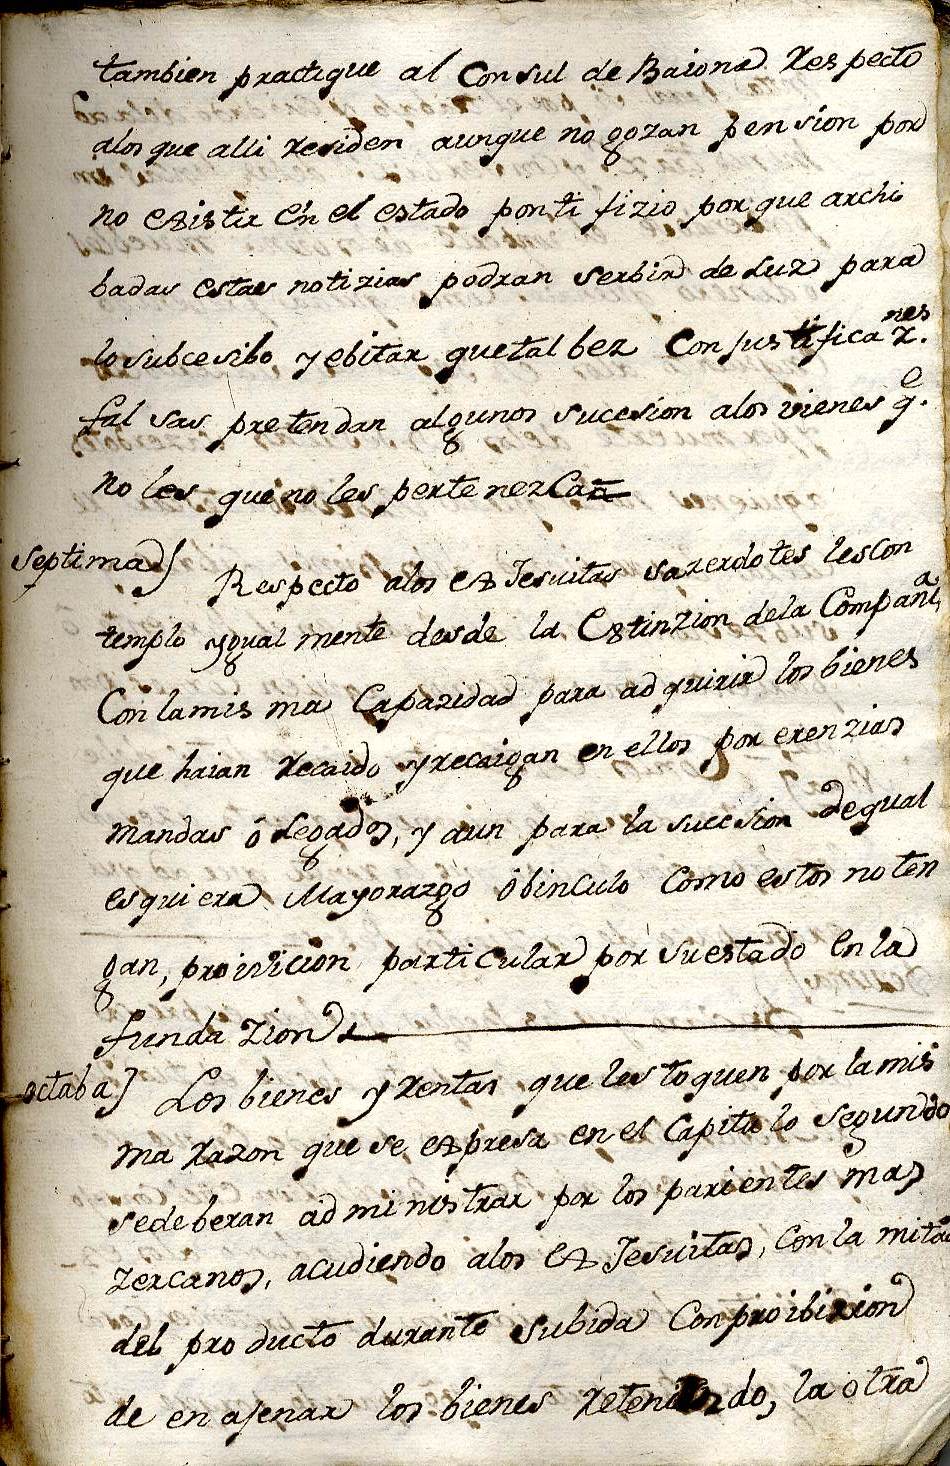 tambien practique al Consul de Baiona Respecto
alos que alli Residen aunque no gozan pension por
no existir en el estado ponti fizio por que archi
badas estas notizias podran serbir de Luz para
lo subcesibo y ebitar que tal bez Con justifica z.nes
fal sas pretendan algunos sucesion alos vienes q.e
no les que no les perte nezCan
Septima) Respecto alos ex Jesuitas sazerdotes les Con
templo ygual mente desde la Extinzion dela Compañi.a
Con la mis ma Capazidad para ad quirir los bienes
que haian Recaido y recaigan en ellos por erenzias
mandas ó Legados, y aun para la succsion de qual
esquiera Mayorazgo ó binculo como estos no ten
gan, proivicion particular por su estado en la
funda zion
octaba) Los bienes y Rentas que les toquen por la mis
ma Razon que se expresa en el Capitu lo segundo
se deberan ad mi nistrar por los parientes mas
zercanos, acudiendo alos ex Jesuitas, Con la mitad
del pro ducto durante su bida Con proibizion
de en ajenar los bienes Reteniendo, la otra